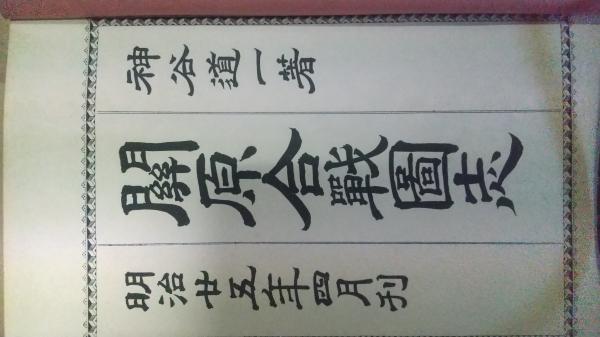 神谷道一著
關原合戰圖志
明治廿五年四月刊